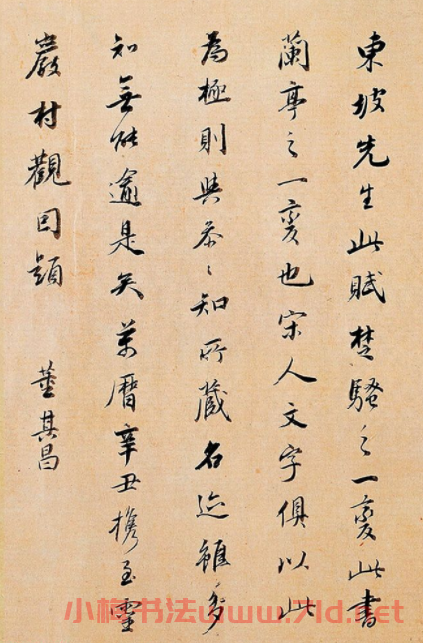 東坡先生此賦楚騷之一變此書
蘭亭之一變也宋人文字俱以此
為極則與叅〻知所藏名迹雖多
知無能逾是矣萬曆辛丑攜至靈
巖村觀因題 董其昌
小梅书法www.7ld.net